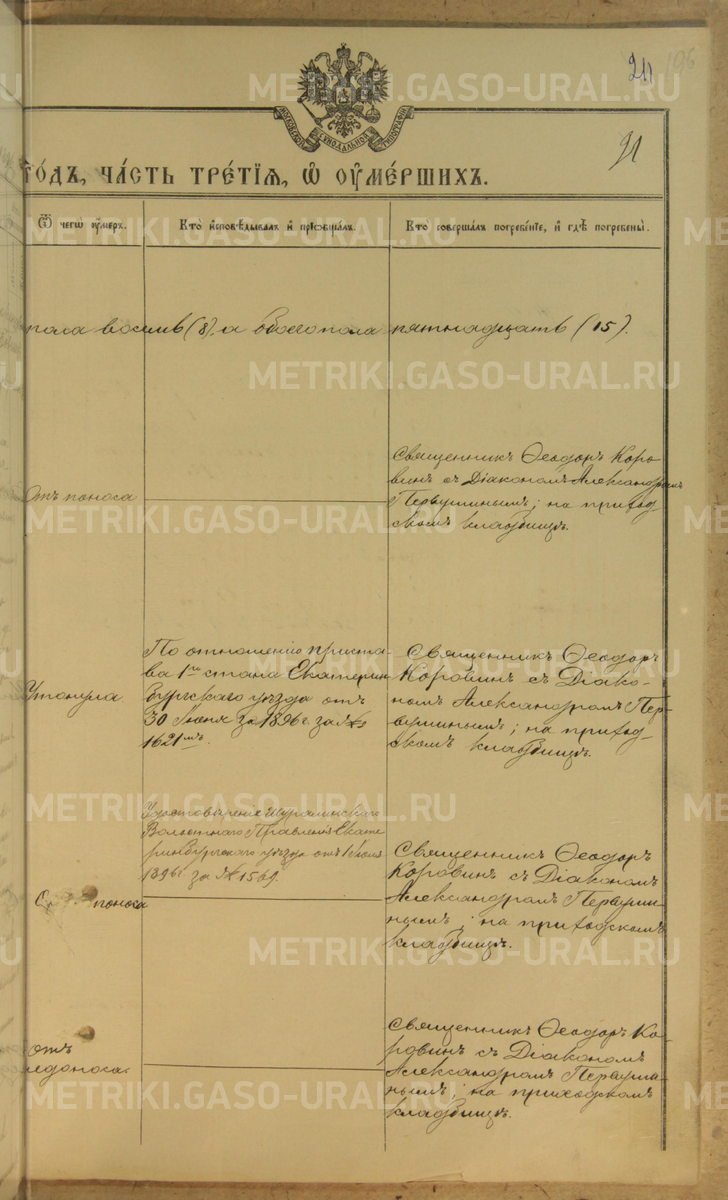 211 196
МОСКОВСКОЙ СѴНОДАЛЬНОЙ ТИПОГРАФІИ
21
ГО́ДЪ, ЧА́СТЬ ТРЕ́ТІѦ, Ѡ҆ ОУ҆МЕ́РШИХЪ.
Ѿ чегѡ̀ оу҆́меръ.
Кто̀ и҆сповѣ́дывалъ и҆ прїѡбща́лъ.
Кто̀ соверша́лъ погребе́нїе, и҆ гдѣ̀ погребены̀.
пола восемь (8), а обоего пола пятнадцать (15).
Отъ поноса
Священникъ Ѳеодоръ Коро-
винъ съ Діакономъ Александромъ
Первушинымъ; на приход-
скомъ кладбищѣ.
Утонула
По отношенію приста-
ва 1го стана Екатерин
бургскаго уѣзда отъ
30 Іюня за 1896 г. за №
1621мъ.
Священникъ Ѳеодоръ
Коровинъ съ Діако-
номъ Александромъ Пер-
вушинымъ; на приход-
скомъ кладбищѣ.
поноса
Удостовѣреніе Шуралинскаго
Волостнаго Правленія Екате
ринбургскаго уѣзда отъ 1 Іюля
1896 г. за № 1569.
Священникъ Ѳеодоръ
Коровинъ съ Діакономъ
Александромъ Первуши-
нымъ; на приходскомъ
кладбищѣ.
отъ
Священникъ Ѳеодоръ Ко-
ровинъ съ Діакономъ
Александромъ Первуши-
нымъ; на приходскомъ
кладбищѣ.
METRIKI.GASO-URAL.RU